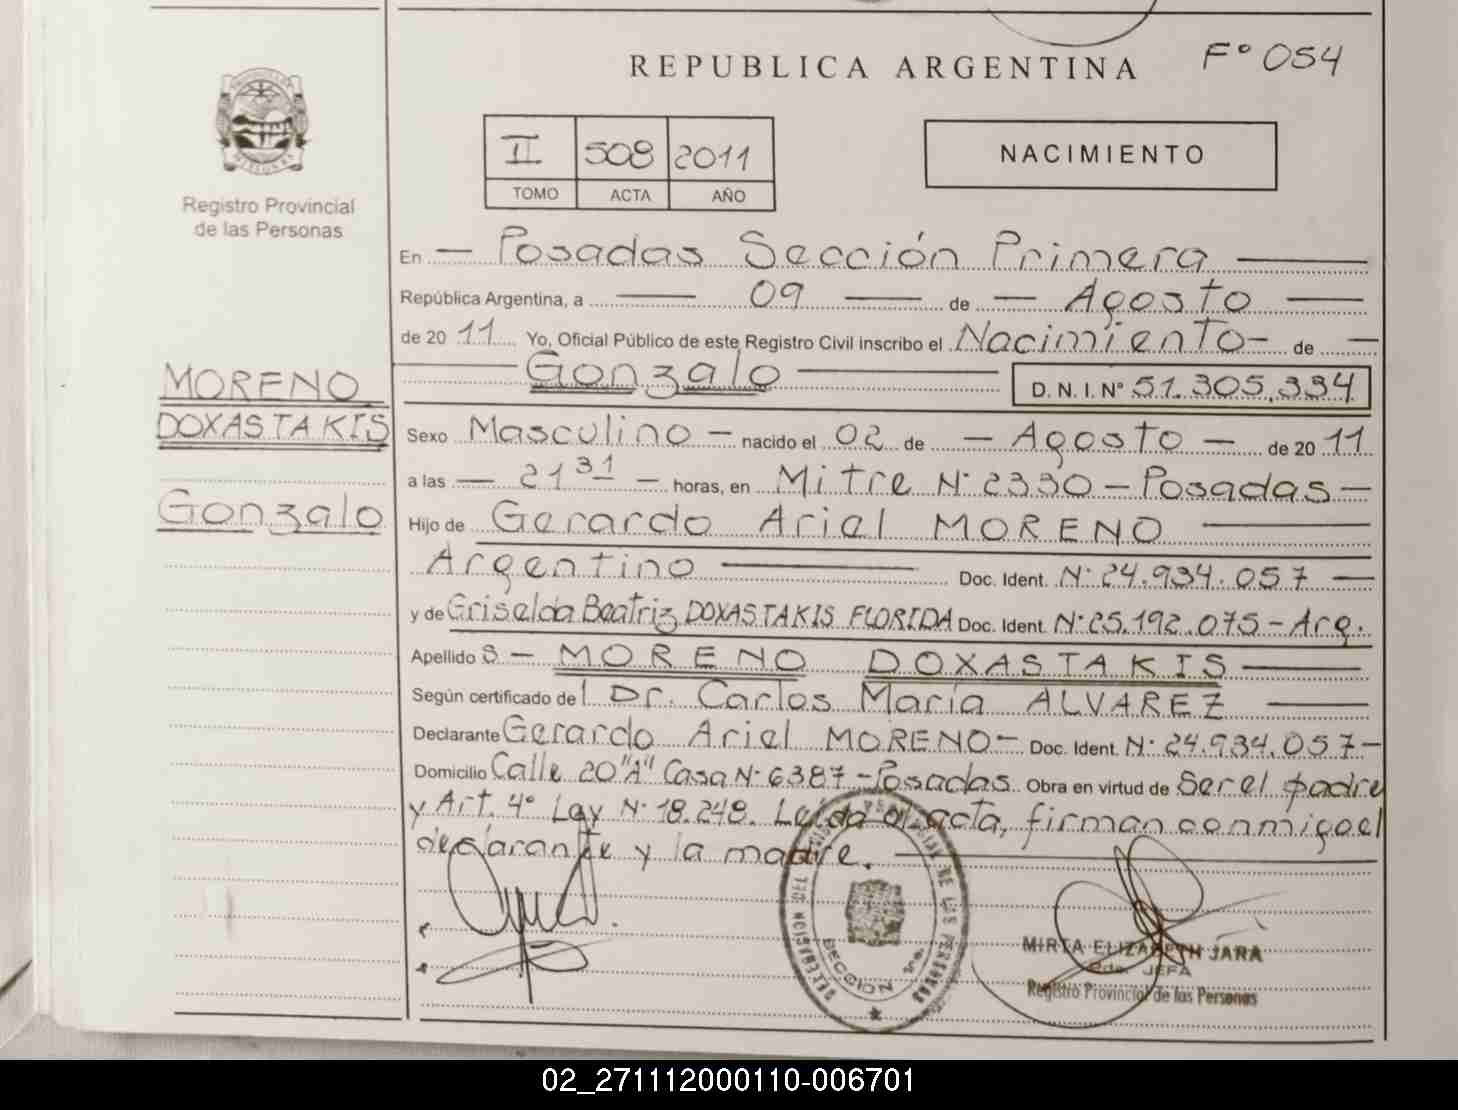 REPUBLICA ARGENTINA
F° 054
II 508 2011
TOMO ACTA AÑO
NACIMIENTO
Registro Provincial
de las Personas
En — Posadas Sección Primera —
República Argentina, a — 09 — de — Agosto —
de 20 11 Yo, Oficial Público de este Registro Civil inscribo el Nacimiento — de —
— Gonzalo — D. N. I. N° 51.305.334
MORENO
DOXASTAKIS
Gonzalo
Sexo Masculino — nacido el 02 de — Agosto — de 20 11
a las — 21 31 — horas, en Mitre N° 2330 — Posadas —
Hijo de Gerardo Ariel MORENO —
Argentino — Doc. Ident. N° 24.934.057 —
y de Griselda Beatriz DOXASTAKIS FLORIDA Doc. Ident. N° 25.192.075 - Arg.
Apellido S — MORENO DOXASTAKIS —
Según certificado de l Dr. Carlos María ALVAREZ —
Declarante Gerardo Ariel MORENO — Doc. Ident. N° 24.934.057 —
Domicilio Calle 20 "A" Casa N° 6387 - Posadas. Obra en virtud de Ser el padre
y Art. 4° Ley N° 18.248. Leída el acta, firman conmigo el
declarante y la madre. —
SECCION 1ra.
MIRTA ELIZABETH JARA
Pda. JEFA
Registro Provincial de las Personas
02_271112000110-006701